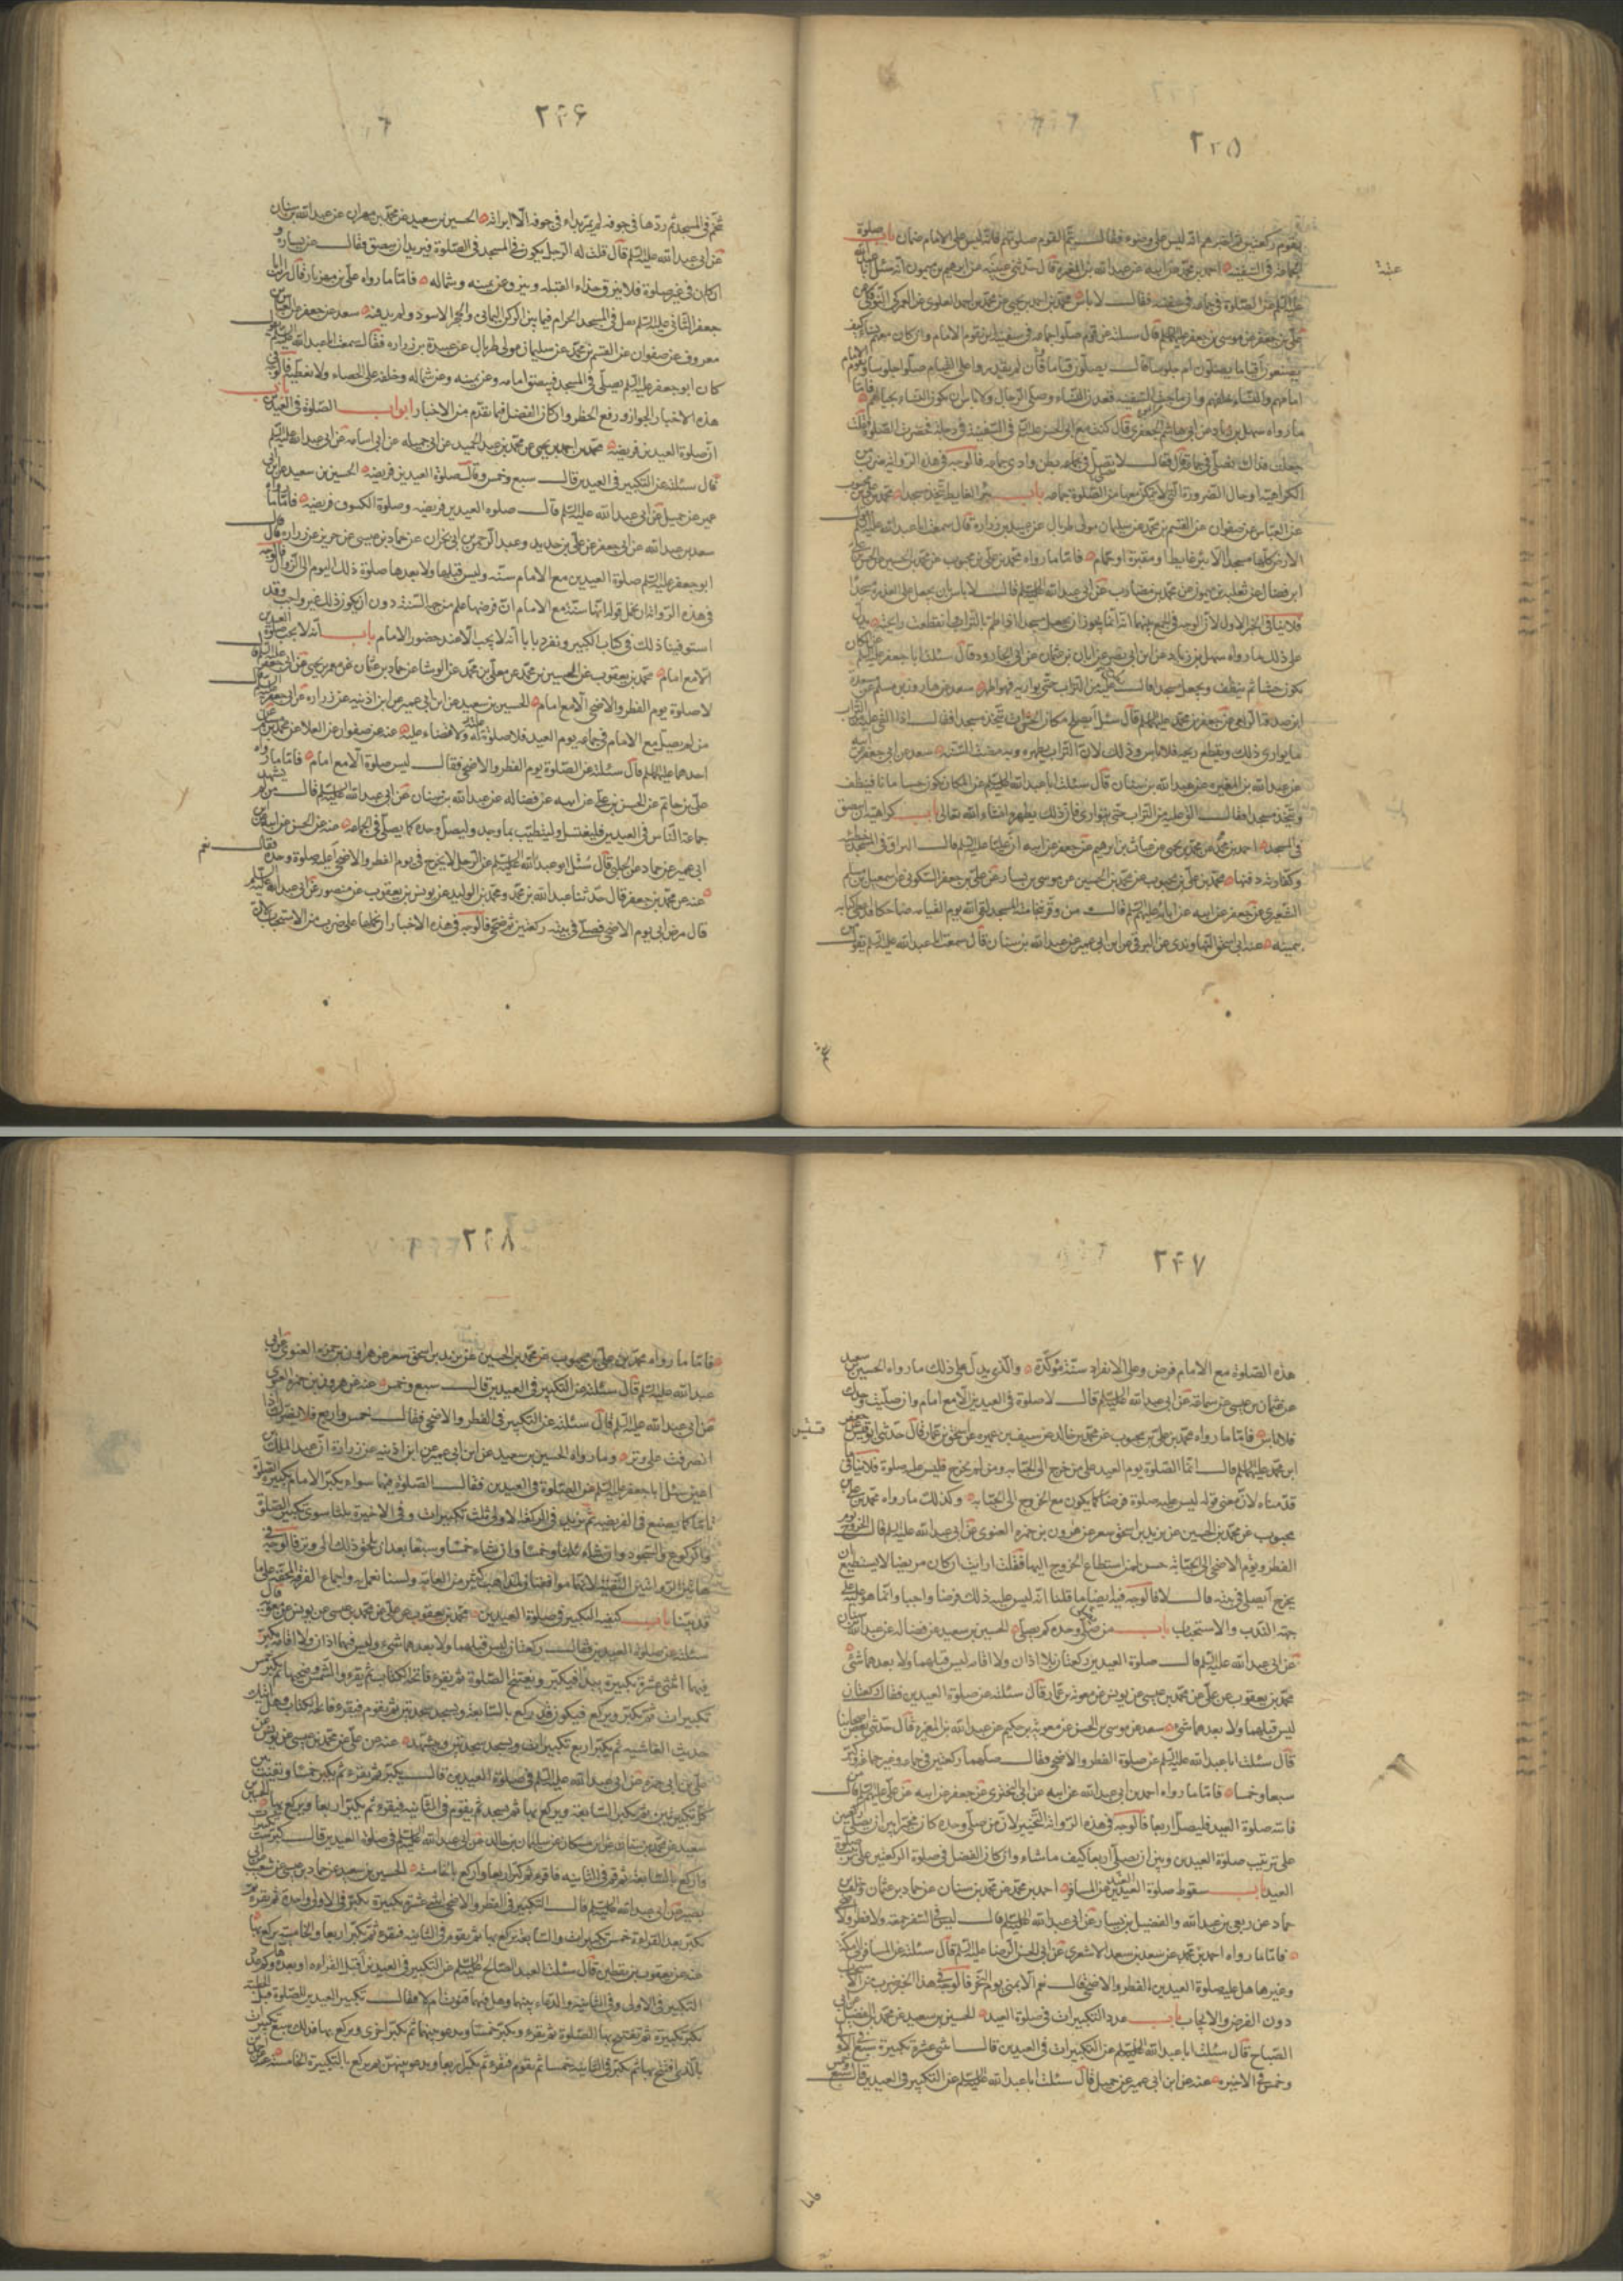 ٢٢٥
يقوم ركعتين ثم اخبرهم انه ليس على وضوء فقال يتم القوم صلوتهم فانه ليس على الامام ضمان باب صلوة
الجماعة فى السفينة احمد بن محمد عن ابيه عن عبد الله بن المغيرة قال حدثنى عيينة عن ابرهيم بن ميمون انه سئل ابا عبد الله
عليه السلم عن الصلوة فى جماعة فى سفينة فقال لا باس محمد بن احمد بن يحيى عن محمد بن احمد العلوى عن العمركى البوفكى عن
على بن جعفر عن موسى بن جعفر عليهما السلم قال سئلته عن قوم صلوا جماعة فى سفينة اين يقوم الامام وان كان معهم نساء كيف
يصنعون اقياما يصلون ام جلوسا قال يصلون قياما فان لم يقدروا على القيام صلوا جلوسا ويقوم الامام
امامهم والنساء خلفهم وان ماجت السفينة قعدن النساء وصلى الرجال ولا باس ان يكون النساء بحيالهم فاما
ما رواه سهل بن زياد عن ابى هاشم الجعفرى قال كنت مع ابى الحسن عليه السلم فى السفينة فى دجلة فحضرت الصلوة فقلت
جعلت فداك نصلى فى جماعة قال فقال لا نصلى فى بطن وادى جماعة فالوجه فى هذه الرواية ضرب من
الكراهية او حال الضرورة التى لا يمكن معها من الصلوة جماعة باب بئر الغايط يتخذ مسجدا محمد بن على بن محبوب
عن العباس عن صفوان عن القسم بن محمد عن سليمان مولى طربال عن عبيد بن زرارة قال سمعت ابا عبد الله عليه السلم يقول
الارض كلها مسجد الا بئر غايط او مقبرة او حمام فاما ما رواه محمد بن على بن محبوب عن محمد بن الحسين عن الحسن بن على
ابن فضال عن ثعلبة بن ميمون عن محمد بن مضارب عن ابى عبد الله عليه السلم قال لا باس بان يجعل على العذرة مسجدا
فلا ينافى الخبر الاول لان الوجه فى الجمع بينهما انه انما يجوز ان يجعل مسجدا اذا طم بالتراب وانقطعت رايحته يدل
على ذلك ما رواه سهل بن زياد عن ابن ابى نصر عن ابان بن عثمان عن ابى الجارود قال سئلت ابا جعفر عليه السلم عن المكان
يكون حشا ثم ينظف ويجعل مسجدا قال يطرح عليه من التراب حتى يواريه فهو اطهر سعد عن هارون بن مسلم عن مسعدة
ابن صدقة الربعى عن جعفر بن محمد عليهما السلم قال سئل ايصلح مكان الحش ان يتخذ مسجدا فقال اذا القى عليه من التراب
ما يوارى ذلك ويقطع ريحه فلا باس وذلك لان التراب يطهره وبه مضت السنة سعد عن ابى جعفر عن ابيه
عن عبد الله بن المغيرة عن عبد الله بن سنان قال سئلت ابا عبد الله عليه السلم عن المكان يكون حشا زمانا فينظف
ويتخذ مسجدا فقال الق عليه من التراب حتى يتوارى فان ذلك يطهره انشاء الله تعالى باب كراهية ان يبصق
فى المسجد احمد بن محمد عن محمد بن يحيى عن غياث بن ابرهيم عن جعفر عن ابيه ان عليا عليه السلم قال البزاق فى المسجد خطيئة
وكفارته دفنها محمد بن على بن محبوب عن محمد بن الحسين عن موسى بن يسار عن على بن جعفر السكونى عن اسمعيل بن مسلم
الشعيرى عن جعفر عن ابيه عن ابائه عليهم السلم قال من وقر بنخامته المسجد لقى الله يوم القيامة ضاحكا قد اعطى كتابه
بيمينه عنه عن ابى اسحق النهاوندى عن البرقى عن ابن ابى عمير عن عبد الله بن سنان قال سمعت ابا عبد الله عليه السلم يقول من
٢٢۶
تنخم فى المسجد ثم ردها فى جوفه لم تمر بداء فى جوفه الا ابراته الحسين بن سعيد عن محمد بن مهران عن عبد الله بن سنان
عن ابى عبد الله عليه السلم قال قلت له الرجل يكون فى المسجد فى الصلوة فيريد ان يبصق فقال عن يساره و
ان كان فى غير صلوة فلا يبزق حذاء القبلة ويبزق عن يمينه وشماله فاما ما رواه على بن مهزيار قال رايت ابا
جعفر الثانى عليه السلم تفل فى المسجد الحرام فيما بين الركن اليمانى والحجر الاسود ولم يدفنه سعد عن جعفر عن العباس بن
معروف عن صفوان عن القسم بن محمد عن سليمان مولى طربال عن عبيد بن زرارة فقال سمعت ابا عبد الله عليه السلم يقول
كان ابو جعفر عليه السلم يصلى فى المسجد فيبصق امامه وعن يمينه وعن شماله وخلفه على الحصاء ولا يغطيه فالوجه فى
هذه الاخبار الجواز ورفع الحظر وان كان الفضل فيما تقدم من الاخبار ابواب الصلوة فى العيدين باب
ان صلوة العيدين فريضة محمد بن احمد بن يحيى عن محمد بن عبد الحميد عن ابى جميلة عن ابى اسامة عن ابى عبد الله عليه السلم
قال سئلته عن التكبير فى العيدين قال سبع وخمس وقال صلوة العيدين فريضة الحسين بن سعيد عن ابن ابى
عمير عن جميل عن ابى عبد الله عليه السلم قال صلوة العيدين فريضة وصلوة الكسوف فريضة فاما ما رواه
سعد بن عبد الله عن ابى جعفر عن على بن حديد وعبد الرحمن بن ابى نجران عن حماد بن عيسى عن حريز عن زرارة قال قال
ابو جعفر عليه السلم صلوة العيدين مع الامام سنة وليس قبلها ولا بعدها صلوة ذلك اليوم الى الزوال فالوجه
فى هذه الرواية ان نحمل قوله انها سنة مع الامام ان فرضها علم من جهة السنة دون ان يكون ذلك غير واجب وقد
استوفينا ذلك فى كتابنا الكبير ونفرد بابا انه لا يجب الا عند حضور الامام باب انه لا يجب صلوة العيدين
الا مع امام محمد بن يعقوب عن الحسين بن محمد عن معلى بن محمد عن الوشا عن حماد بن عثمان عن معمر بن يحيى عن ابى جعفر عليه السلم قال
لا صلوة يوم الفطر والاضحى الا مع امام الحسين بن سعيد عن ابن ابى عمير عن ابن اذينه عن زرارة عن ابى جعفر عليه السلم قال
من لم يصل مع الامام فى جماعة يوم العيد فلا صلوة له ولا قضاء عليه عنه عن صفوان عن العلا عن محمد بن مسلم عن
احدهما عليهما السلم قال سئلته عن الصلوة يوم الفطر والاضحى فقال ليس صلوة الا مع امام فاما ما رواه
على بن حاتم عن الحسن بن على عن ابيه عن فضالة عن عبد الله بن سنان عن ابى عبد الله عليه السلم قال من لم يشهد
جماعة الناس فى العيدين فليغتسل وليتطيب بما وجد وليصل وحده كما يصلى فى الجماعة عنه عن الحسن عن ابيه عن ابن
ابى عمير عن حماد عن الحلبى قال سئل ابو عبد الله عليه السلم عن الرجل لا يخرج فى يوم الفطر والاضحى اعليه صلوة وحده فقال نعم
عنه عن محمد بن جعفر قال حدثنا عبد الله بن محمد ومحمد بن الوليد عن يونس بن يعقوب عن منصور عن ابى عبد الله عليه السلم
قال مرض ابى يوم الاضحى فصلى فى بيته ركعتين ثم ضحى فالوجه فى هذه الاخبار ان نحملها على ضرب من الاستحباب لان
٢٢٧
هذه الصلوة مع الامام فرض وعلى الانفراد سنة مؤكدة والذى يدل على ذلك ما رواه الحسين بن سعيد
عن عثمان بن عيسى عن سماعة عن ابى عبد الله عليه السلم قال لا صلوة فى العيدين الا مع امام وان صليت وحدك
فلا باس فاما ما رواه محمد بن على بن محبوب عن محمد بن خالد عن سيف بن عميرة عن اسحق بن عمار قال حدثنى ابو قيس عن جعفر
ابن محمد عليهما السلم قال انما الصلوة يوم العيد على من خرج الى الجبانة ومن لم يخرج فليس عليه صلوة فلا ينافى ما
قدمناه لان معنى قوله ليس عليه صلوة فرضا كما يكون مع الخروج الى الجبانة وكذلك ما رواه محمد بن على بن
محبوب عن محمد بن الحسين عن يزيد بن اسحق شعر عن هرون بن حمزة الغنوى عن ابى عبد الله عليه السلم قال الخروج يوم
الفطر ويوم الاضحى الى الجبانة حسن لمن استطاع الخروج اليها فقلت ارايت ان كان مريضا لا يستطيع ان
يخرج ايصلى فى بيته قال لا فالوجه فيه ايضا ما قلناه انه ليس عليه ذلك فرضا واجبا وانما هو عليه على
جهة الندب والاستحباب باب من صلى وحده كم يصلى الحسين بن سعيد عن فضالة عن عبد الله بن سنان
عن ابى عبد الله عليه السلم قال صلوة العيدين ركعتان بلا اذان ولا اقامة ليس قبلهما ولا بعدهما شئ
محمد بن يعقوب عن على عن محمد بن عيسى عن يونس عن معوية بن عمار قال سئلته عن صلوة العيدين فقال ركعتان
ليس قبلهما ولا بعدهما شئ سعد عن موسى بن الحسن عن معوية بن حكيم عن عبد الله بن المغيرة قال حدثنى بعض اصحابنا
قال سئلت ابا عبد الله عليه السلم عن صلوة الفطر والاضحى فقال صلهما ركعتين فى جماعة وغير جماعة وكبر
سبعا وخمسا فاما ما رواه احمد بن ابى عبد الله عن ابيه عن ابى البخترى عن جعفر عن ابيه عن على عليه السلم قال من
فاتته صلوة العيد فليصل اربعا فالوجه فى هذه الرواية التخيير لان من صلى وحده كان مخيرا بين ان يصلى ركعتين
على ترتيب صلوة العيدين وبين ان يصلى اربعا كيف ما شاء وان كان الفضل فى صلوة الركعتين على ترتيب صلوة
العيد باب سقوط صلوة العيدين عن المسافر احمد بن محمد عن محمد بن سنان عن حماد بن عثمان وخلف بن
حماد عن ربعى بن عبد الله والفضيل بن يسار عن ابى عبد الله عليه السلم قال ليس فى السفر جمعة ولا فطر ولا اضحى
فاما ما رواه احمد بن محمد عن سعد بن سعد الاشعرى عن ابى الحسن الرضا عليه السلم قال سئلته عن المسافر الى مكة
وغيرها هل عليه صلوة العيدين الفطر والاضحى قال نعم الا بمنى يوم النحر فالوجه فى هذا الخبر ضرب من الاستحباب
دون الفرض والايجاب باب عدد التكبيرات فى صلوة العيد الحسين بن سعيد عن محمد بن الفضيل عن ابى
الصباح قال سئلت ابا عبد الله عليه السلم عن التكبيرات فى العيدين قال اثنى عشرة تكبيرة سبع فى الاولى
وخمس فى الاخيرة عنه عن ابن ابى عمير عن جميل قال سئلت ابا عبد الله عليه السلم عن التكبير فى العيدين قال سبع وخمس
٢٢٨
فاما ما رواه محمد بن على بن محبوب عن محمد بن الحسين عن يزيد بن اسحق شعر عن هرون بن حمزة الغنوى عن ابى
عبد الله عليه السلم قال سئلته عن التكبير فى العيدين قال سبع وخمس عنه عن هرون بن حمزة الغنوى
عن ابى عبد الله عليه السلم قال سئلته عن التكبير فى الفطر والاضحى فقال خمس واربع فلا يضرك اذا
انصرفت على وتر وما رواه الحسين بن سعيد عن ابن ابى عمير عن ابن اذينه عن زرارة ان عبد الملك بن
اعين سئل ابا جعفر عليه السلم عن الصلوة فى العيدين فقال الصلوة فيهما سواء يكبر الامام تكبيرة الصلوة
قائما كما يصنع فى الفريضة ثم يزيد فى الركعة الاولى ثلث تكبيرات وفى الاخيرة ثلثا سوى تكبيرة الصلوة
والركوع والسجود وان شاء ثلثا وخمسا وان شاء خمسا وسبعا بعد ان يلحق ذلك الى وتر فالوجه فى
هاتين الروايتين التقية لانهما موافقتان لمذاهب كثير من العامة ولسنا نعمل به واجماع الفرقة المحقة على ما
قدمناه باب كيفية التكبير فى صلوة العيدين محمد بن يعقوب عن على عن محمد بن عيسى عن يونس عن معوية قال
سئلته عن صلوة العيدين فقال ركعتان ليس قبلهما ولا بعدهما شئ وليس فيهما اذان ولا اقامة يكبر
فيهما اثنتى عشرة تكبيرة يبدا فيكبر ويفتتح الصلوة ثم يقرء فاتحة الكتاب ثم يقرء والشمس وضحيها ثم يكبر خمس
تكبيرات ثم يكبر ويركع فيكون قد ركع بالسابعة ويسجد سجدتين ثم يقوم فيقرء فاتحة الكتاب وهل اتيك
حديث الغاشية ثم يكبر اربع تكبيرات ويسجد سجدتين ويتشهد عنه عن على عن محمد بن عيسى عن يونس عن
على بن ابى حمزة عن ابى عبد الله عليه السلم فى صلوة العيدين قال يكبر ثم يقرء ثم يكبر خمسا ويقنت بين
كل تكبيرتين ثم يكبر السابعة ويركع بها ثم يسجد ثم يقوم فى الثانية فيقرء ثم يكبر اربعا ويركع بها الحسين بن
سعيد عن محمد بن سنان عن ابن مسكان عن سليمان بن خالد عن ابى عبد الله عليه السلم فى صلوة العيدين قال كبر ست تكبيرات
واركع بالسابعة ثم قم فى الثانية فاقرء ثم كبر اربعا واركع بالخامسة الحسين بن سعيد عن حماد بن عيسى عن شعيب عن ابى
بصير عن ابى عبد الله عليه السلم قال التكبير فى الفطر والاضحى اثنتى عشرة تكبيرة يكبر فى الاولى واحدة ثم يقرء ثم
يكبر بعد القراءة خمس تكبيرات والسابعة يركع بها ثم يقوم فى الثانية فيقرء ثم يكبر اربعا والخامسة يركع بها
عنه عن يعقوب بن يقطين قال سئلت العبد الصالح عليه السلم عن التكبير فى العيدين اقبل القراءة او بعدها وكم عدد
التكبير فى الاولى وفى الثانية والدعاء بينهما وهل فيهما قنوت ام لا فقال تكبير العيدين للصلوة قبل الخطبة
يكبر تكبيرة ثم يفتتح بها الصلوة ثم يقرء ويكبر خمسا ويدعو بينها ثم يكبر اخرى ويركع بها فذلك سبع تكبيرات
بالذى افتتح بها ثم يكبر فى الثانية خمسا ثم يقوم فيقرء ثم يكبر اربعا ويدعو بينهن ثم يركع بالتكبيرة الخامسة